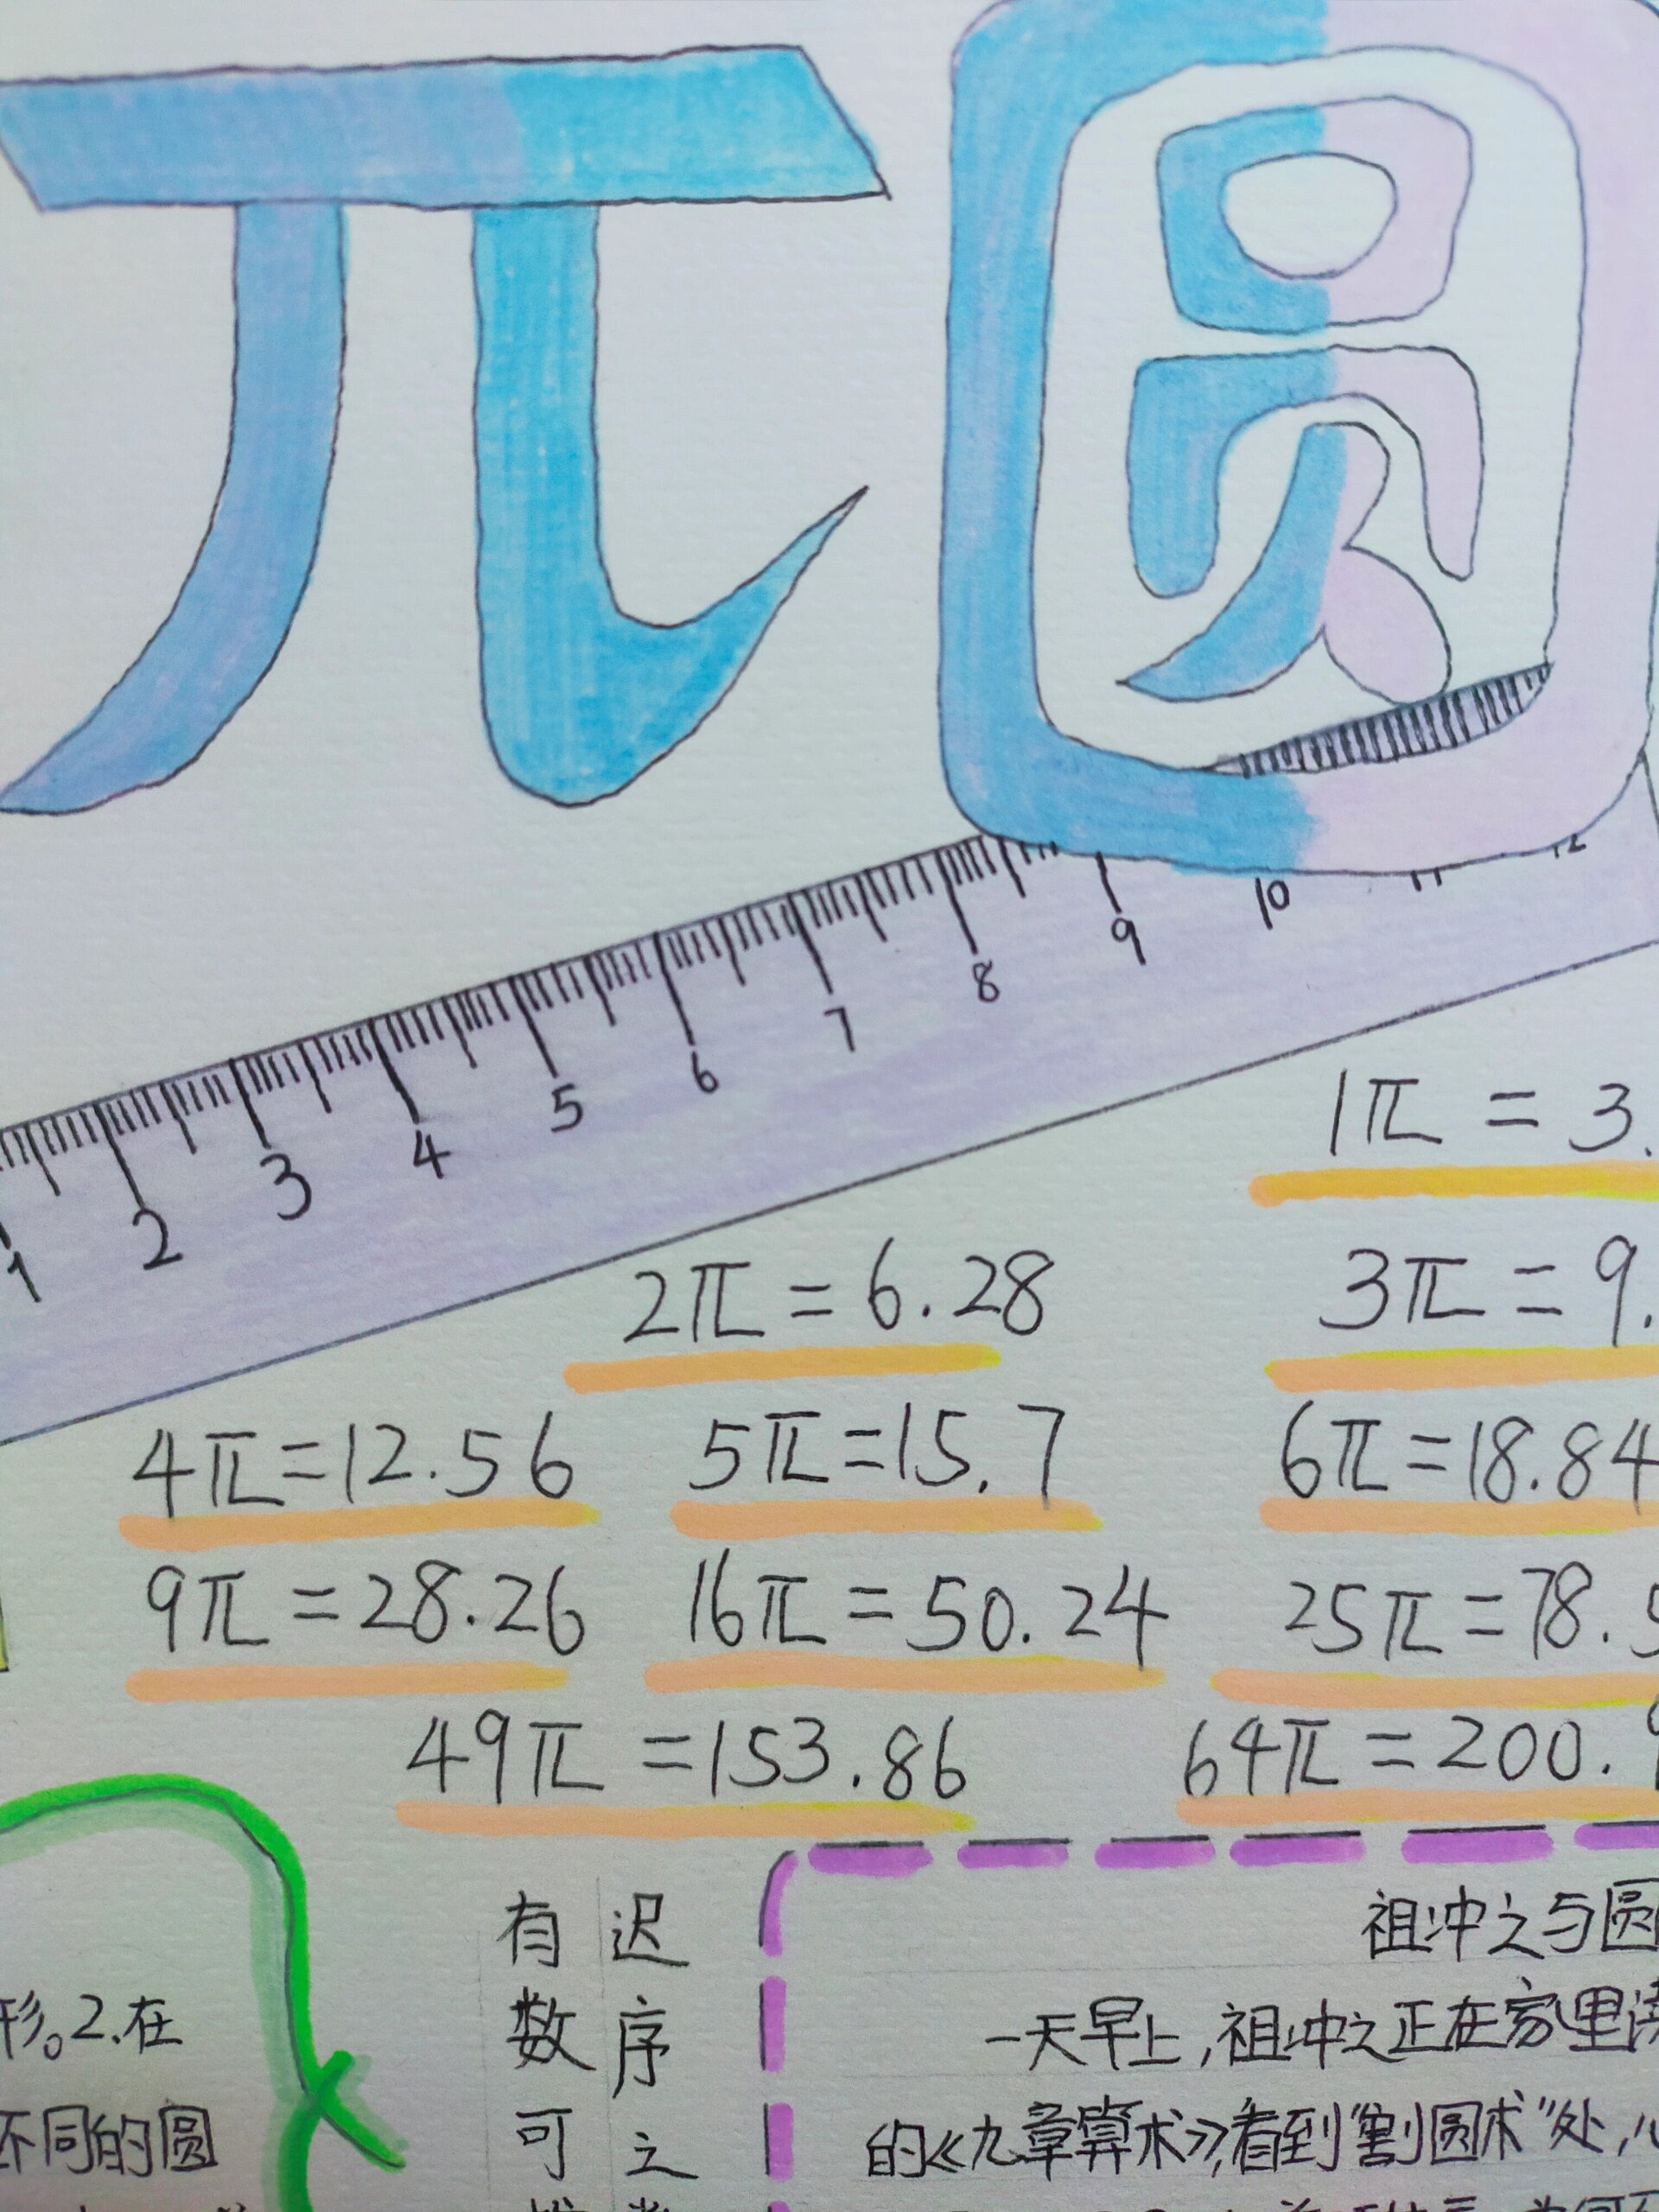 π 圆
1 2 3 4 5 6 7 8 9 10 11 12
1π = 3.
2π = 6.28 3π = 9.
4π=12.56 5π=15.7 6π=18.84
9π=28.26 16π=50.24 25π=78.5
49π=153.86 64π=200.9
形。2.在
不同的圆
迟序之
有数可
祖冲之与圆
一天早上,祖冲之正在家里
的《九章算术》,看到"割圆术"处,